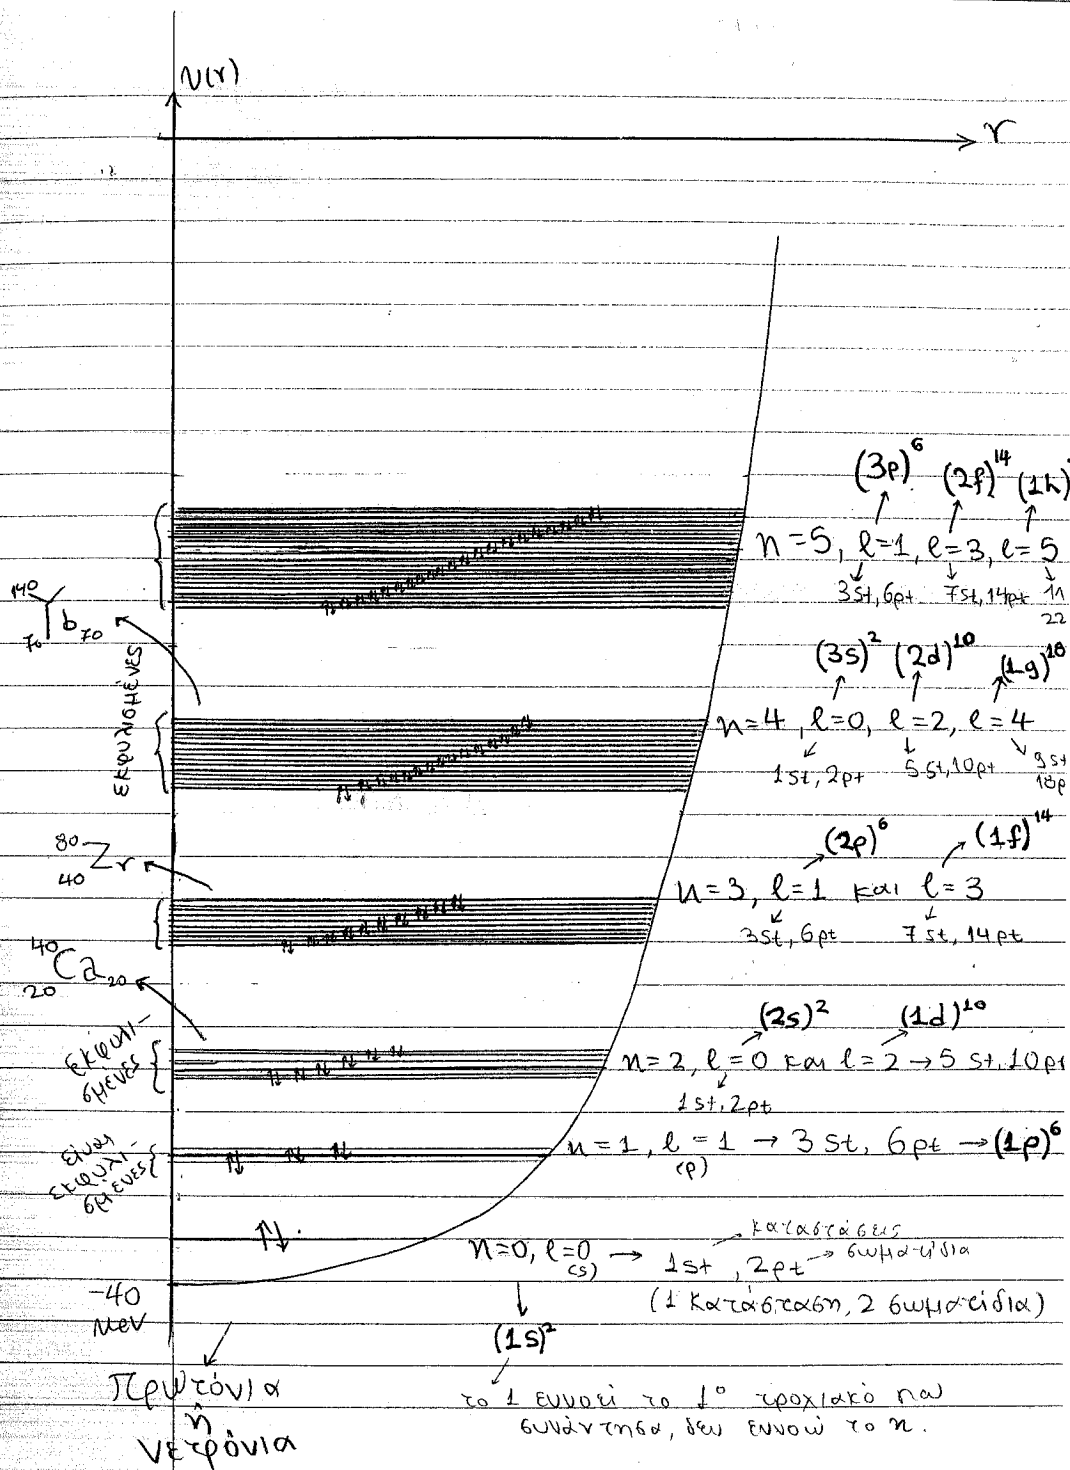 V(r)
r
(3p)⁶ (2f)¹⁴ (1h)
n=5, l=1, l=3, l=5
3st, 6pt 7st, 14pt 11
22
¹⁴⁰₇₀Yb₇₀
εκφυλισμένες
(3s)² (2d)¹⁰ (1g)¹⁸
n=4, l=0, l=2, l=4
1st, 2pt 5st, 10pt 9st
18p
⁸⁰₄₀Zr
(2p)⁶ (1f)¹⁴
n=3, l=1 και l=3
3st, 6pt 7st, 14pt
⁴⁰₂₀Ca₂₀
(2s)² (1d)¹⁰
εκφυλι-
σμένες
n=2, l=0 και l=2 → 5st, 10pt
1st, 2pt
είναι
εκφυλι-
σμένες
n=1, l=1 → 3st, 6pt → (1p)⁶
(p)
καταστάσεις
n=0, l=0 → 1st, 2pt → σωματίδια
(s)
(1 κατάσταση, 2 σωματίδια)
-40
MeV
(1s)²
Πρωτόνια
ή
νετρόνια
το 1 εννοεί το 1° τροχιακό που
συνάντησα, δεν εννοώ το n.